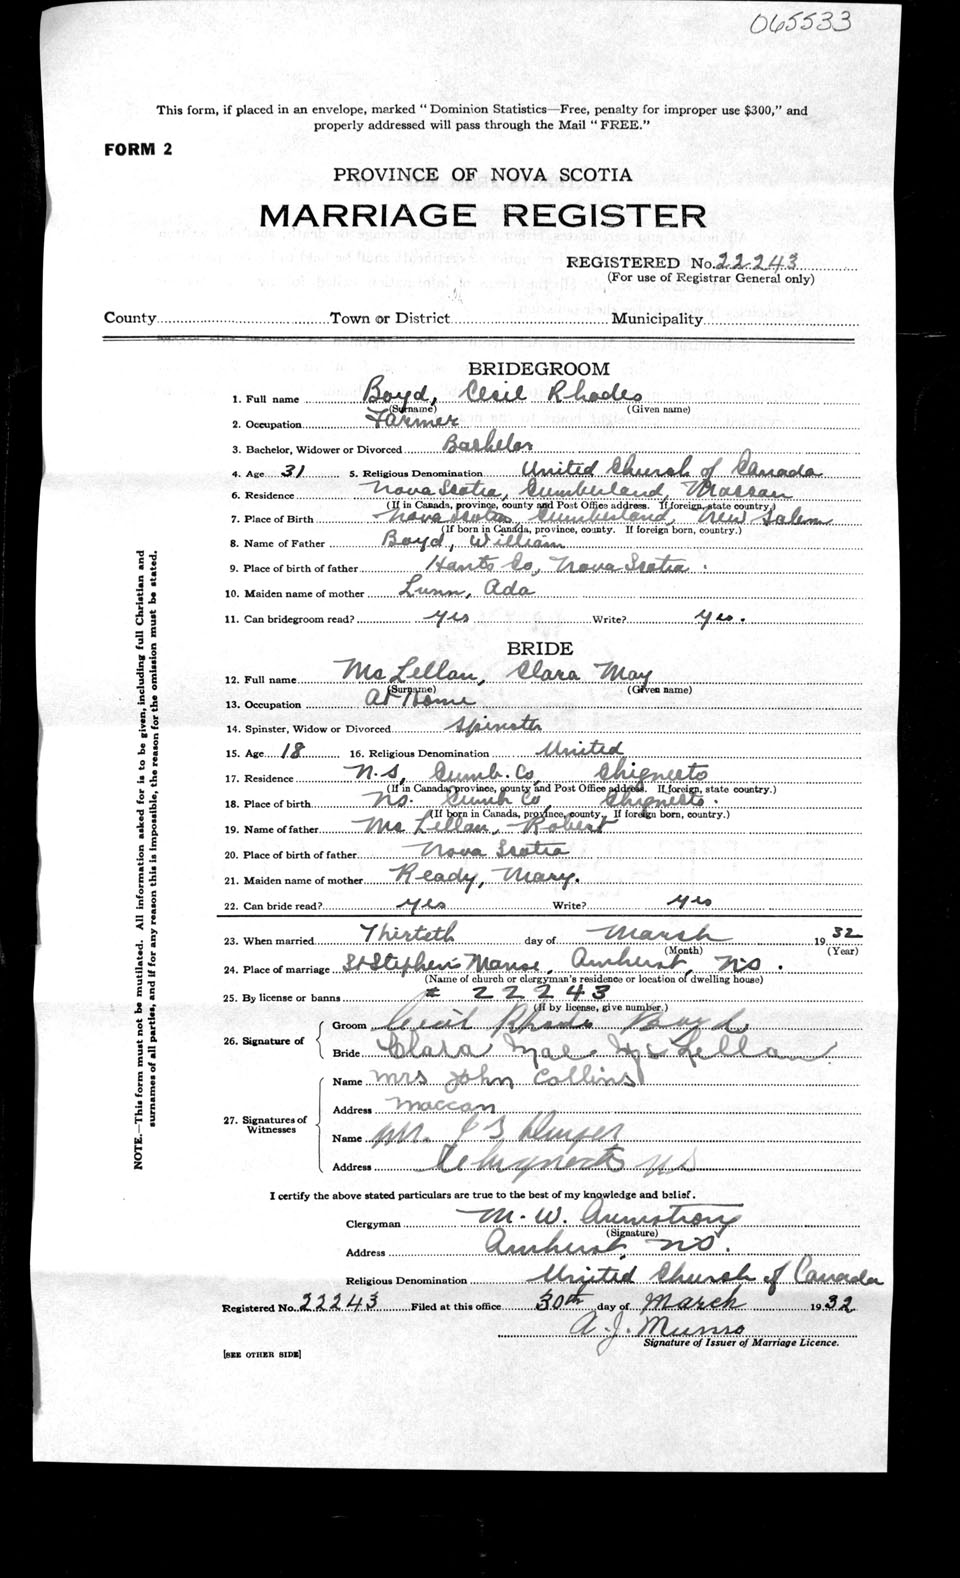 065533
This form, if placed in an envelope, marked "Dominion Statistics—Free, penalty for improper use $300," and
properly addressed will pass through the Mail "FREE."
FORM 2
PROVINCE OF NOVA SCOTIA
MARRIAGE REGISTER
REGISTERED No. 22243
(For use of Registrar General only)
County Town or District Municipality
BRIDEGROOM
1. Full name Boyd, Cecil Rhodes
(Surname) (Given name)
2. Occupation Farmer
3. Bachelor, Widower or Divorced Bachelor
4. Age 31 5. Religious Denomination United Church of Canada
6. Residence Nova Scotia, Cumberland, Maccan
(If in Canada, province, county and Post Office address. If foreign, state country.)
7. Place of Birth Nova Scotia Cumberland, New Salem
(If born in Canada, province, county. If foreign born, country.)
8. Name of Father Boyd, William
9. Place of birth of father Hants Co, Nova Scotia.
10. Maiden name of mother Lunn, Ada
11. Can bridegroom read? yes Write? yes.
BRIDE
12. Full name McLellan, Clara May
(Surname) (Given name)
13. Occupation At Home
14. Spinster, Widow or Divorced Spinster
15. Age 18 16. Religious Denomination United
17. Residence N.S, Cumb. Co, Chignecto
(If in Canada, province, county and Post Office address. If foreign, state country.)
18. Place of birth NS. Cumb Co, Chignecto.
(If born in Canada, province, county. If foreign born, country.)
19. Name of father McLellan, Robert
20. Place of birth of father Nova Scotia
21. Maiden name of mother Ready, Mary.
22. Can bride read? yes Write? yes
23. When married Thirteth day of March 1932
(Month) (Year)
24. Place of marriage St Stephen's Manse, Amherst, NS.
(Name of church or clergyman's residence or location of dwelling house)
25. By license or banns # 22243
(If by license, give number.)
26. Signature of
Groom Cecil Rhodes Boyd
Bride Clara Mae McLellan
27. Signatures of Witnesses
Name Mrs John Collins
Address Maccan
Name Mr.
Address Chignecto NS
I certify the above stated particulars are true to the best of my knowledge and belief.
Clergyman M. W. Armstrong
(Signature)
Address Amherst, NS.
Religious Denomination United Church of Canada
Registered No. 22243 Filed at this office 30th day of March 1932
A. J. Munro
Signature of Issuer of Marriage Licence.
[SEE OTHER SIDE]
NOTE.—This form must not be mutilated. All information asked for is to be given, including full Christian and
surnames of all parties, and if for any reason this is impossible, the reason for the omission must be stated.